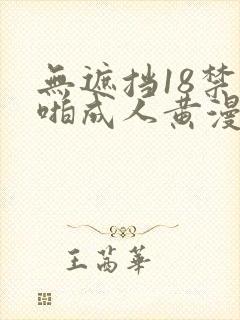 無遮挡18禁
啪成人黄漫
王茜華